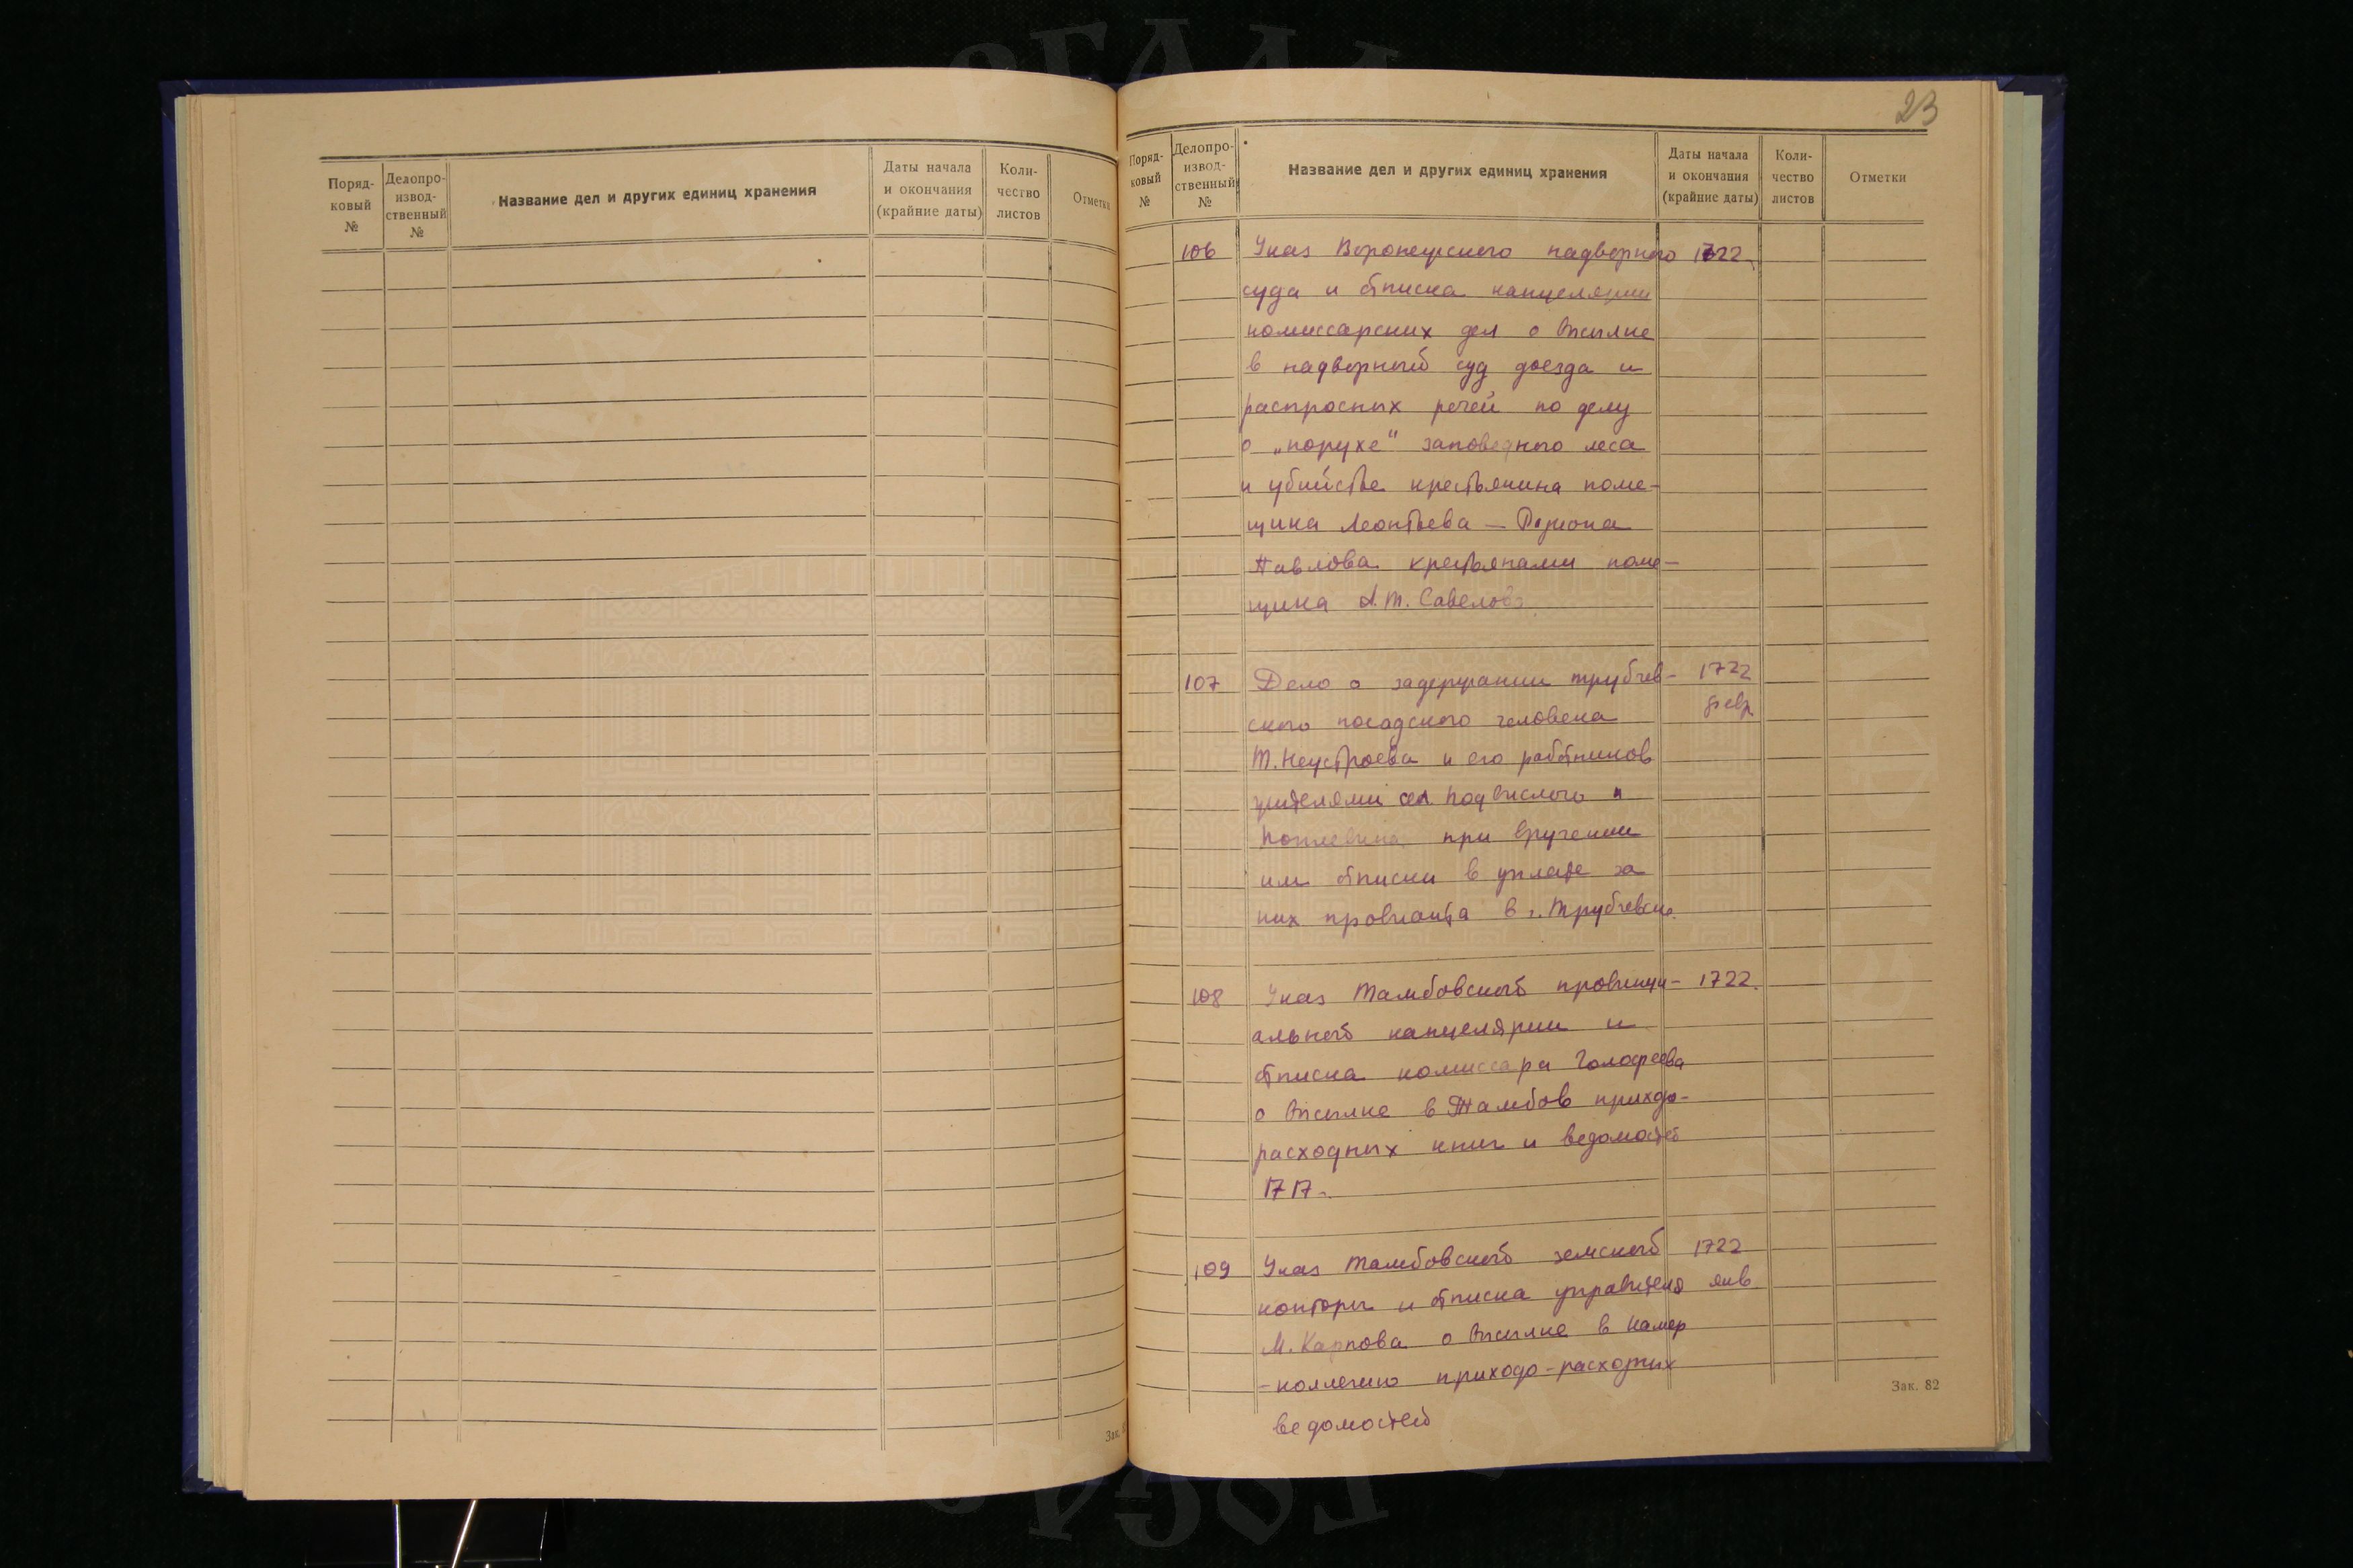 Поряд-
ковый
№
Делопро-
извод-
ственный
№
Название дел и других единиц хранения
Даты начала
и окончания
(крайние даты)
Коли-
чество
листов
Отметки
Зак.
23
Поряд-
ковый
№
Делопро-
извод-
ственный
№
Название дел и других единиц хранения
Даты начала
и окончания
(крайние даты)
Коли-
чество
листов
Отметки
106 Указ Воронежского надворного 1722
суда и отписка канцелярии
комиссарских дел о высылке
в надворный суд доезда и
распросных речей по делу
о „порухе" заповедного леса
и убийстве крестьянина поме-
щика Леонтьева —
Павлова крестьянами поме-
щика А.Т. Савелова
107 Дело о задержании трубчев- 1722
ского посадского человека февр
Т. Неустроева и его работников
жителями сел Подвислого и
при вручении
им отписки в уплате за
них провианта в г. Трубчевске
108 Указ Тамбовской провинци- 1722.
альной канцелярии и
отписка комиссара Голофеева
о высылке в Тамбов приходо-
расходных книг и ведомостей
1717 г.
109 Указ Тамбовской земской 1722
конторы и отписка управителя янв
М. Карпова о высылке в камер
-коллегию приходо-расходных
ведомостей
Зак. 82